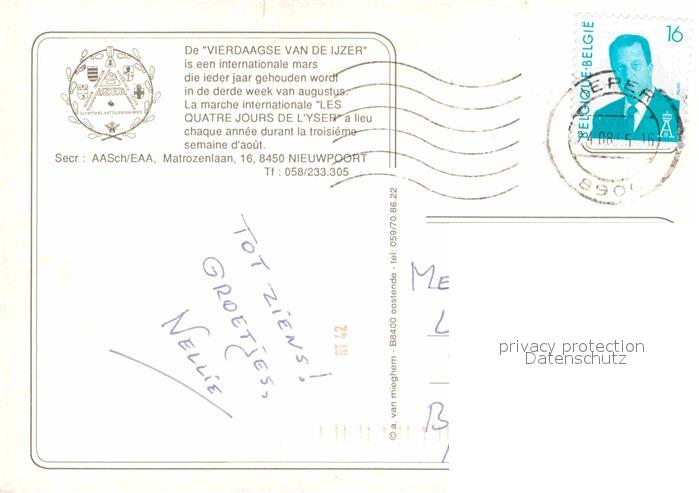 De "VIERDAAGSE VAN DE IJZER"
is een internationale mars
die ieder jaar gehouden wordt
in de derde week van augustus.
La marche internationale "LES
QUATRE JOURS DE L'YSER" a lieu
chaque année durant la troisième
semaine d'août.
Secr : AASch/EAA, Matrozenlaan, 16, 8450 NIEUWPOORT
Tf : 058/233.305
16
BELGIQUE-BELGIË
IEPER
8900
TOT ZIENS!
GROETJES,
NELLIE
RT 42
© a. van mieghem - B8400 oostende - tel: 059/70.86.22
ME
L
B
privacy protection
Datenschutz